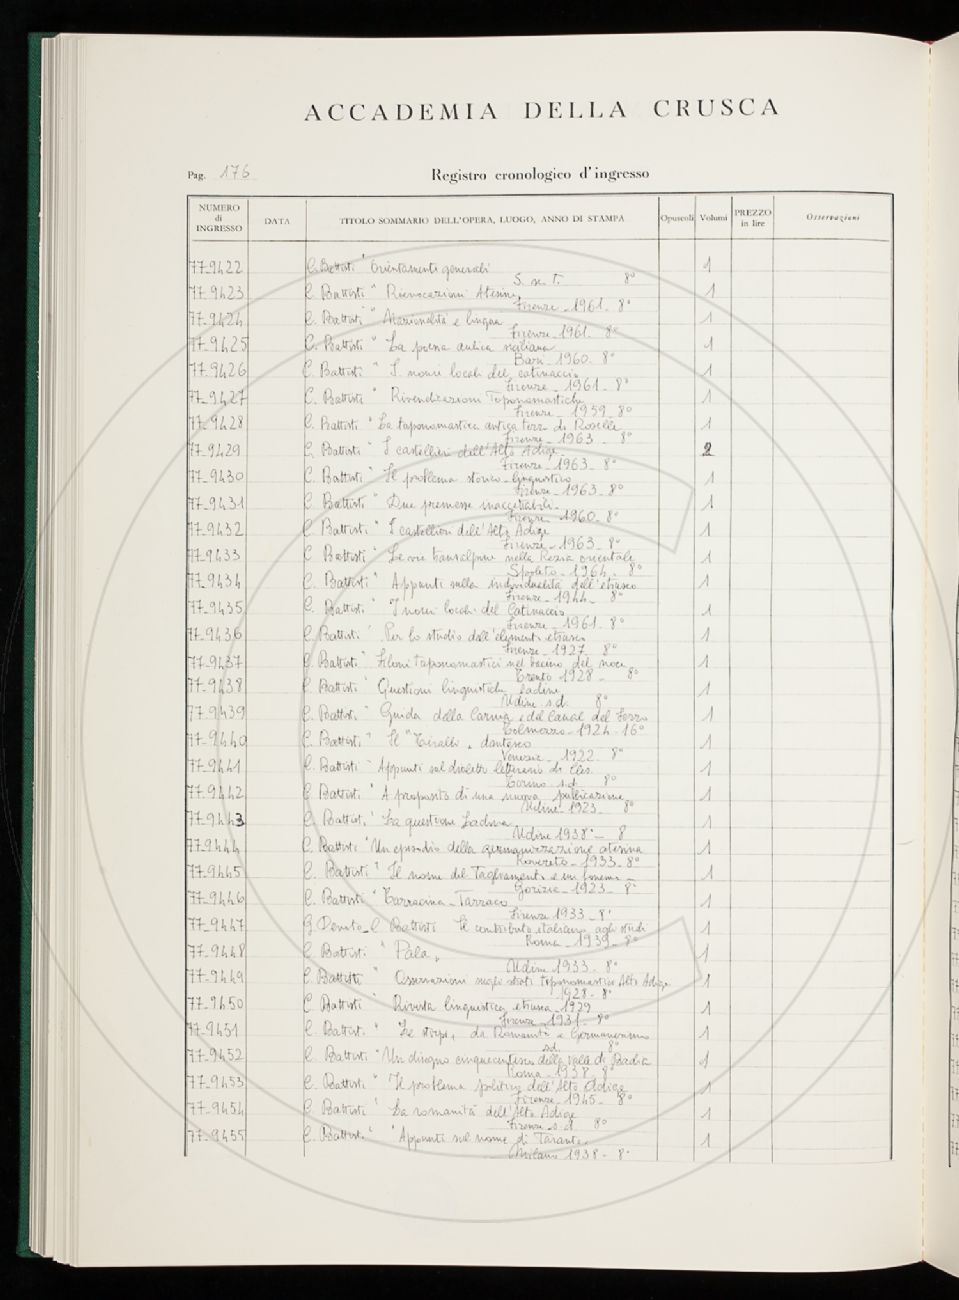 ACCADEMIA DELLA CRUSCA
Pag. 176
Registro cronologico d'ingresso
NUMERO di INGRESSO DATA TITOLO SOMMARIO DELL'OPERA, LUOGO, ANNO DI STAMPA Opuscoli Volumi PREZZO in lire Osservazioni
77-9422 C. Battisti " Orientamenti generali 1
S. n. T. 8°
77-9423 C. Battisti " Rievocazioni Atesine 1
Firenze - 1961. 8°
77-9424 C. Battisti " Nazionalità e lingua 1
Firenze - 1961. 8°
77-9425 C. Battisti " La poesia antica siciliana 1
Bari - 1960. 8°
77-9426 C. Battisti " I nomi locali del catinaccio 1
Firenze - 1961 - 8°
77-9427 C. Battisti " Rivendicazioni Toponomastiche 1
Firenze - 1959 - 8°
77-9428 C. Battisti " La toponomastica antica terr. di Roselle 1
Firenze - 1963 - 8°
77-9429 C. Battisti " I castellieri dell'Alto Adige 2
Firenze - 1963 - 8°
77-9430 C. Battisti " Il problema storico-linguistico 1
Firenze - 1963 - 8°
77-9431 C. Battisti " Due premesse inaccettabili 1
Firenze - 1960 - 8°
77-9432 C. Battisti " I castellieri dell'Alto Adige 1
Firenze - 1963 - 8°
77-9433 C. Battisti " Le vie transalpine nella Rezia orientale 1
Spoleto - 1964 - 8°
77-9434 C. Battisti " Appunti sulla individualità dell'etrusco 1
Firenze - 1944 - 8°
77-9435 C. Battisti " I nomi locali del Catinaccio 1
Firenze - 1961. 8°
77-9436 C. Battisti " Per lo studio dell'elemento etrusco 1
Firenze - 1927 8°
77-9437 C. Battisti " Filoni toponomastici nel bacino del noce 1
Trento 1928 - 8°
77-9438 C. Battisti " Questioni linguistiche ladine 1
Udine s.d. 8°
77-9439 C. Battisti " Guida della Carnia e del Canal del Ferro 1
Tolmezzo - 1924 - 16°
77-9440 C. Battisti " Il "Tiralli" dantesco 1
Venezia - 1922. 8°
77-9441 C. Battisti " Appunti sul dialetto letterario di 1
Torino s.d. 8°
77-9442 C. Battisti " A proposito di una nuova pubblicazione 1
Udine - 1923 - 8°
77-9443 C. Battisti " La questione Ladina 1
Udine 1938 - 8
77-9444 C. Battisti " Un episodio della germanizzazione atesina 1
Rovereto - 1933 - 8°
77-9445 C. Battisti " Il nome del Tagliamento e un 1
Gorizia - 1923 - 8°
77-9446 C. Battisti " Tarracina - Tarraco 1
Firenze 1933 - 8°
77-9447 G. Devoto - C. Battisti Il contributo italiano agli studi 1
Roma - 1939 - 8°
77-9448 C. Battisti " Pala " 1
Udine 1933. 8°
77-9449 C. Battisti " Osservazioni sugli strati toponomastici Alto Adige 1
1928 - 8°
77-9450 C. Battisti " Rivista linguistica etrusca 1929 1
Firenze - 1931 - 8°
77-9451 C. Battisti " da Romanità e Germanesimo 1
s.d. 8°
77-9452 C. Battisti " Un disegno cinquecentesco della valle di Badia 1
Roma - 1938 - 8°
77-9453 C. Battisti " Il problema politico dell'Alto Adige 1
Firenze - 1945 - 8°
77-9454 C. Battisti " La romanità dell'Alto Adige 1
Firenze s.d. 8°
77-9455 C. Battisti " Appunti sul nome di Taranto 1
Milano 1938 - 8°